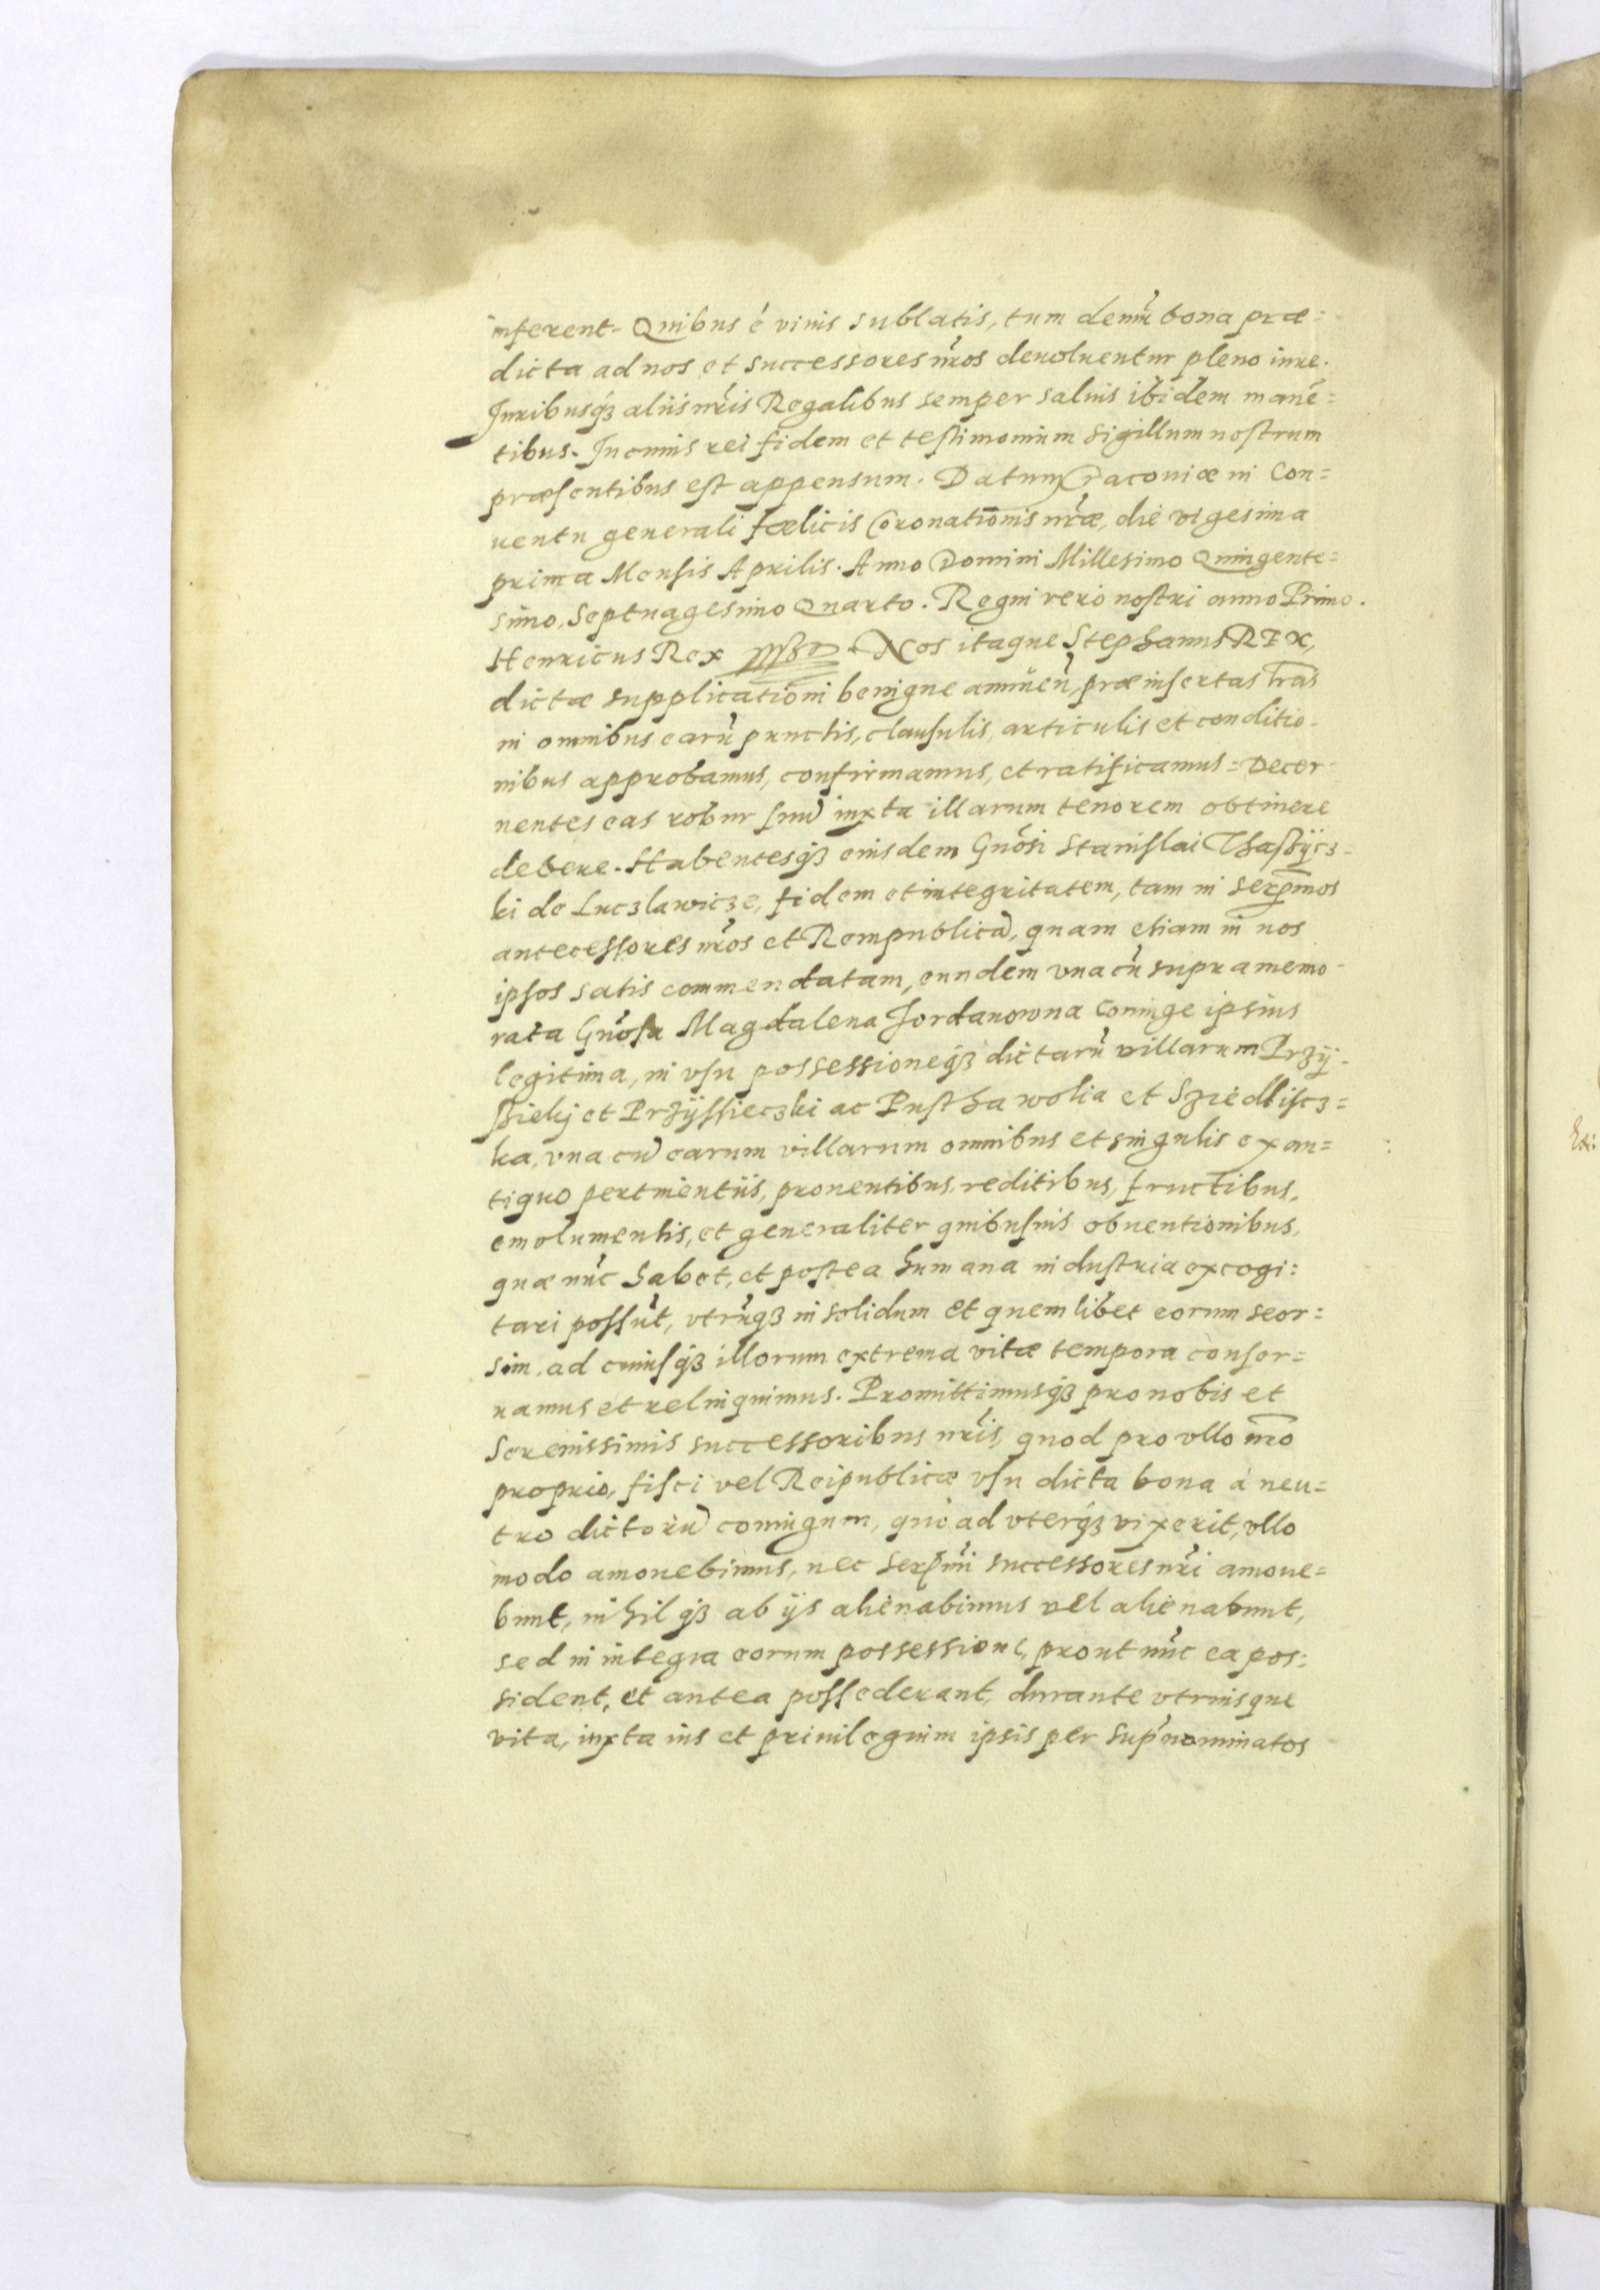 inferent. Quibus é viuis sublatis, tum demū bona præ=
dicta ad nos et successores nr̃os deuoluentur pleno iure.
Juribusq́ꝫ aliis nr̃is Regalibus semper saluis ibidem manē=
tibus. In cuius rei fidem et testimonium sigillum nostrum
præsentibus est appensum. Datum Cracouiæ in Con=
uentu generali fœlicis Coronationis nr̃æ, die vigesima
prima Mensis Aprilis. Anno Domini Millesimo Quingente=
simo, Septuagesimo Quarto. Regni vero nostri anno Primo.
Henricus Rex Nos itaque Stephanus REX,
dictæ supplicationi benigne annuen̄, præinsertas lr̃as
in omnibus earū punctis, clausulis, articulis et conditio=
nibus approbamus, confirmamus, et ratificamus = Decer=
nentes eas robur suū iuxta illarum tenorem obtinere
debere. Habentesq́ꝫ eiusdem Gnōsi Stanislai Thaſzÿcz=
ki de Luczlawicze, fidem et integritatem, tam in serp̃mos
antecessores nr̃os et Rempublicā, quam etiam in nos
ipsos satis commendatam, eundem vna cū supramemo=
rata Gnōsa Magdalena Jordanowna Coniuge ipsius
legitima, in vsu possessioneq́ꝫ dictarū villarum Przÿ=
ſziekj et Przÿſsieczki ac Pustha wolia et Sziedliscz=
ka, vna cū earum villarum omnibus et singulis ex an=
tiquo pertinentiis, prouentibus, reditibus, fructibus,
emolumentis, et generaliter quibusuis obuentionibus,
quæ nūc habet, et postea humana industria excogi=
tari possūt, vtrūqꝫ in solidum et quemlibet eorum seor=
sim, ad cuiusq́ꝫ illorum extrema vitæ tempora conser=
uamus et relinquimus. Promittimusq́ꝫ pro nobis et
Serenissimis successoribus nr̃is, quod pro vllo mō
proprio, fisci vel Reipublicæ vsu dicta bona á neu=
tro dictorū coniugum, quò ad vterq́ꝫ vixerit, vllo
modo amouebimus, nec serp̃mi successores nr̃i amoue=
bunt, nihil q́ꝫ ab ijs alienabimus vel alienabunt,
sed in integra eorum possessione, prout nūc ea pos=
sident, et antea possederant, durante vtriusque
vita, iuxta ius et priuilegium ipsis per sup̃nominatos